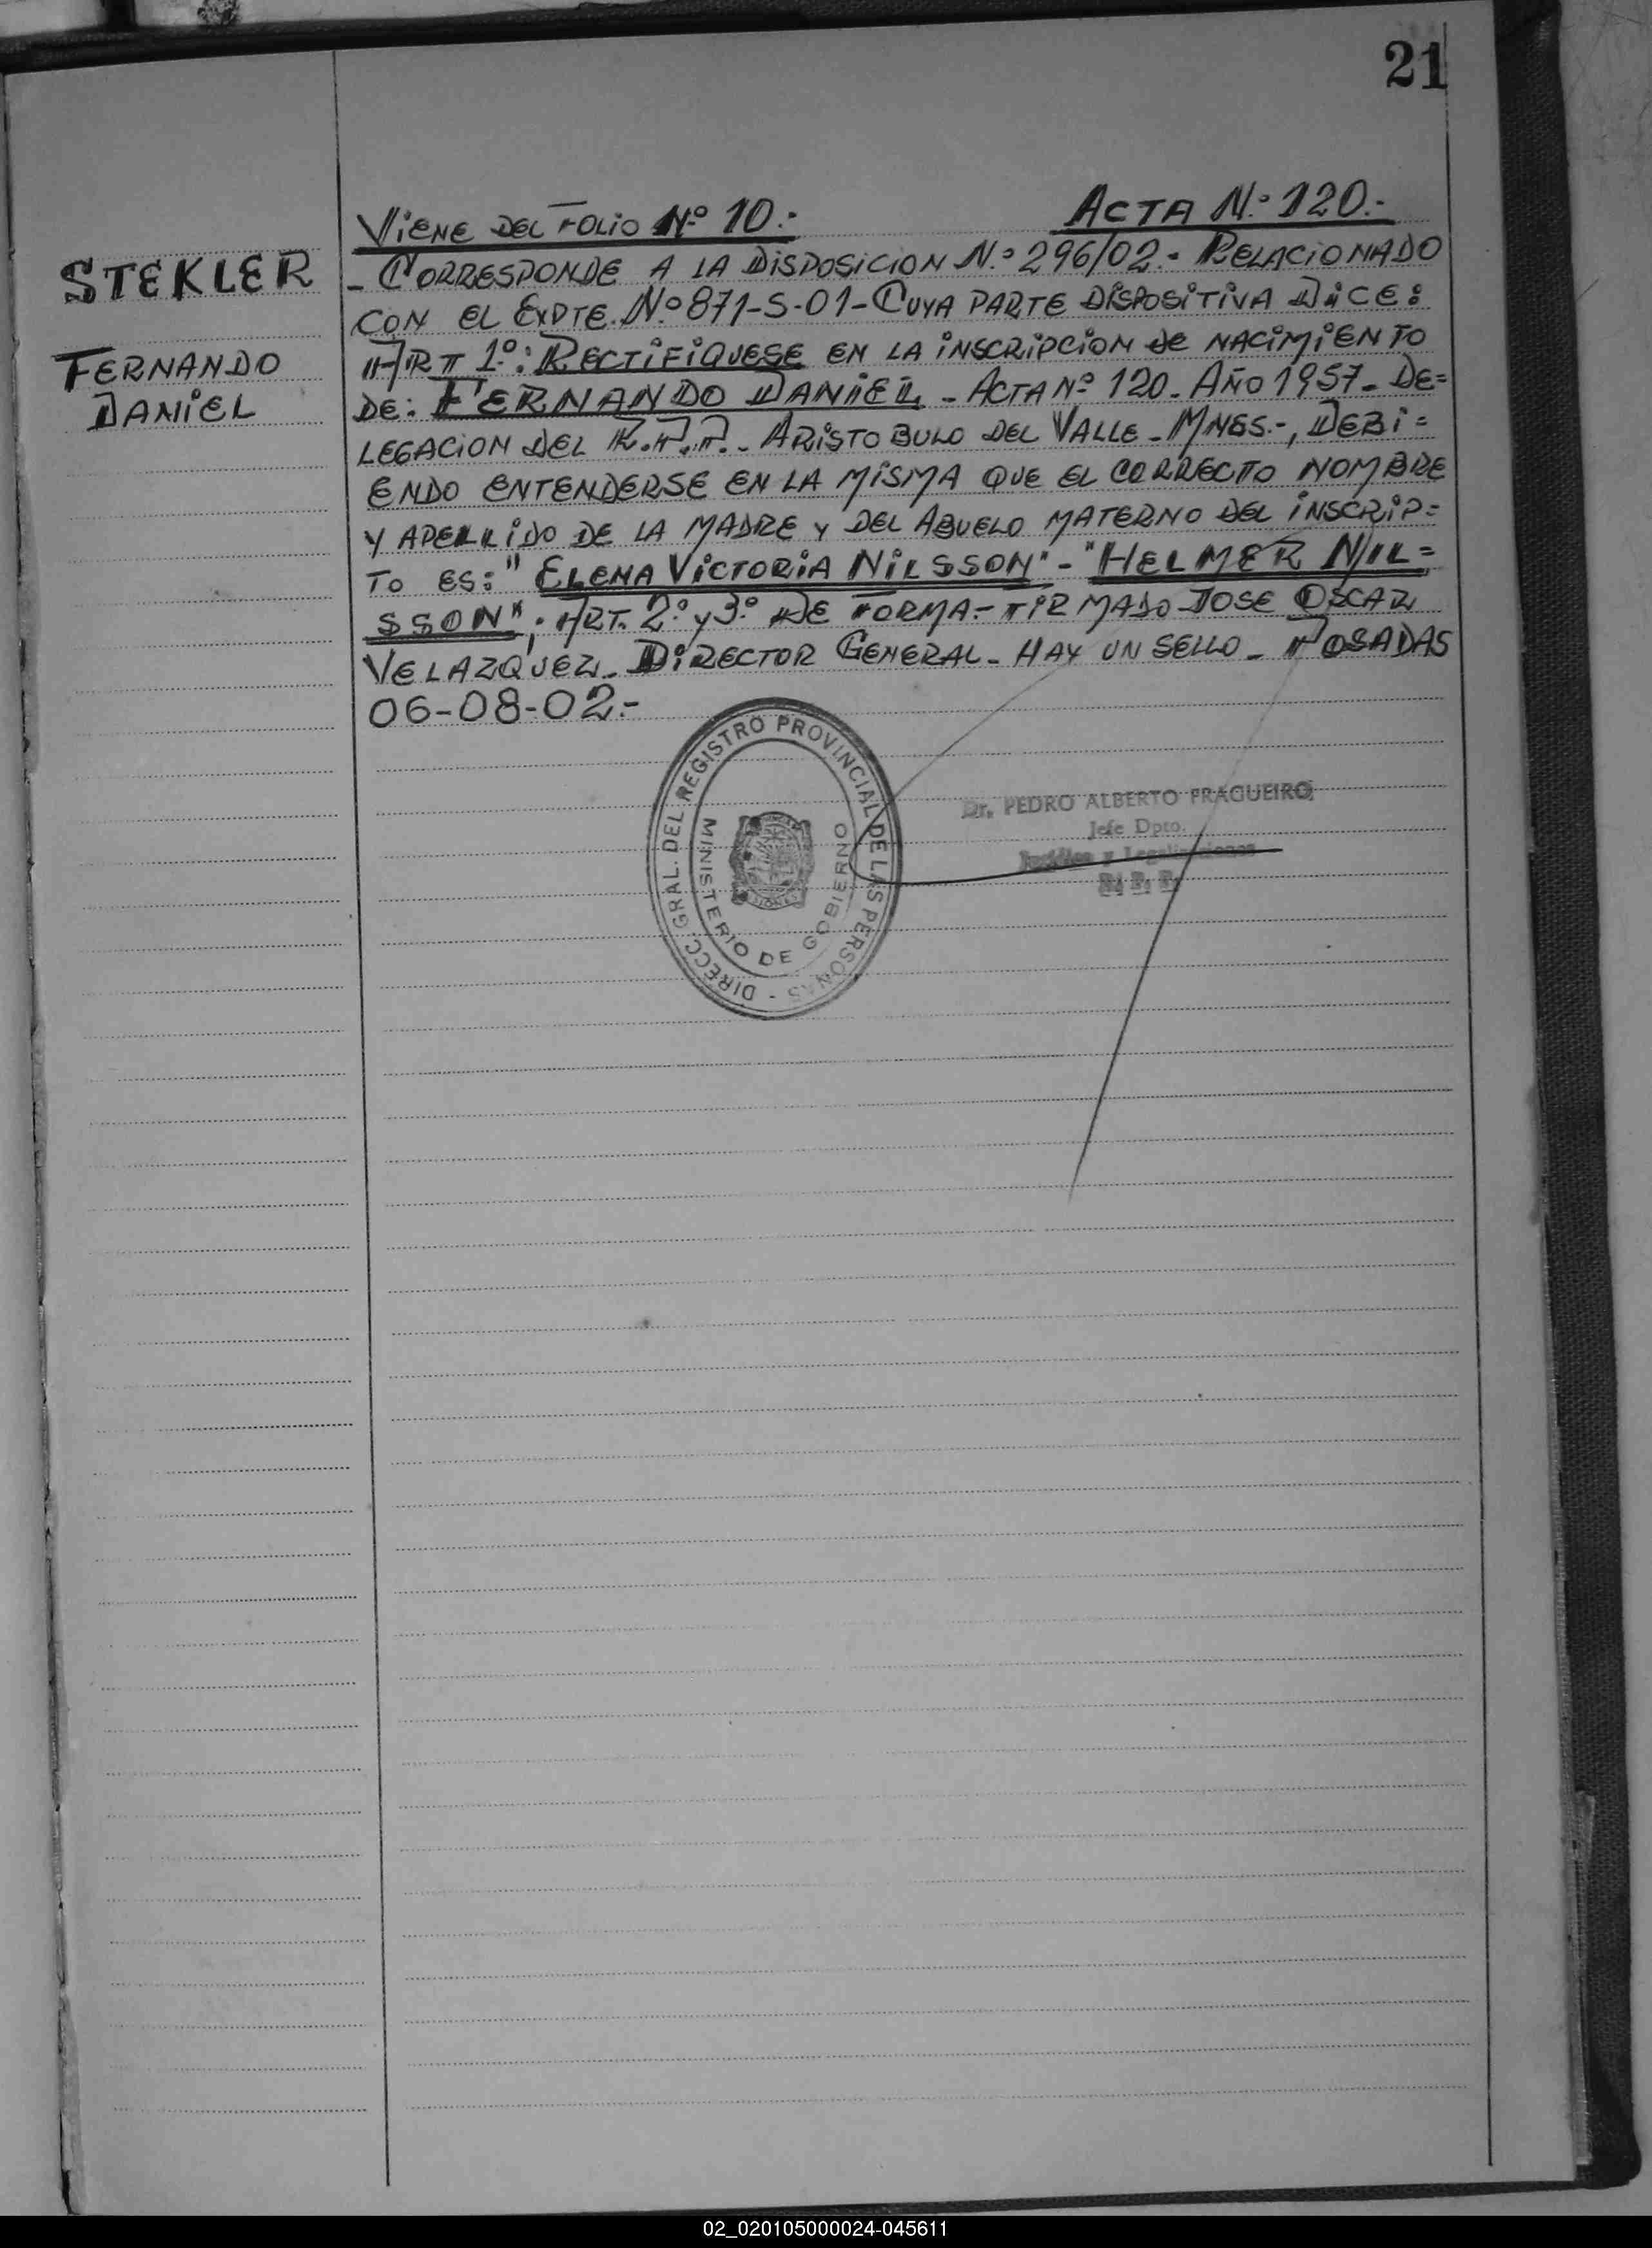 21
STEKLER
FERNANDO
DANIEL
VIENE DEL FOLIO Nº 10.- ACTA N.º 120.-
- CORRESPONDE A LA DISPOSICION N.º 296/02.- RELACIONADO
CON EL EXPTE. N.º 871-S-01- CUYA PARTE DISPOSITIVA DICE:
"ART 1º: RECTIFIQUESE EN LA INSCRIPCION DE NACIMIENTO
DE: FERNANDO DANIEL - ACTA Nº 120. AÑO 1957- DE=
LEGACION DEL R.P.P.- ARISTOBULO DEL VALLE - MNES.-, DEBI=
ENDO ENTENDERSE EN LA MISMA QUE EL CORRECTO NOMBRE
Y APELLIDO DE LA MADRE Y DEL ABUELO MATERNO DEL INSCRIP=
TO ES: "ELENA VICTORIA NILSSON" - "HELMER NIL=
SSON"; ART. 2º Y 3º DE FORMA - FIRMADO JOSE OSCAR
VELAZQUEZ - DIRECTOR GENERAL - HAY UN SELLO - POSADAS
06-08-02.-
DIRECC GRAL. DEL REGISTRO PROVINCIAL DE LAS PERSONAS -
MINISTERIO DE GOBIERNO
Dr. PEDRO ALBERTO FRAGUEIRO
Jefe Dpto.
Jurídico y Legalizaciones
02_020105000024-045611